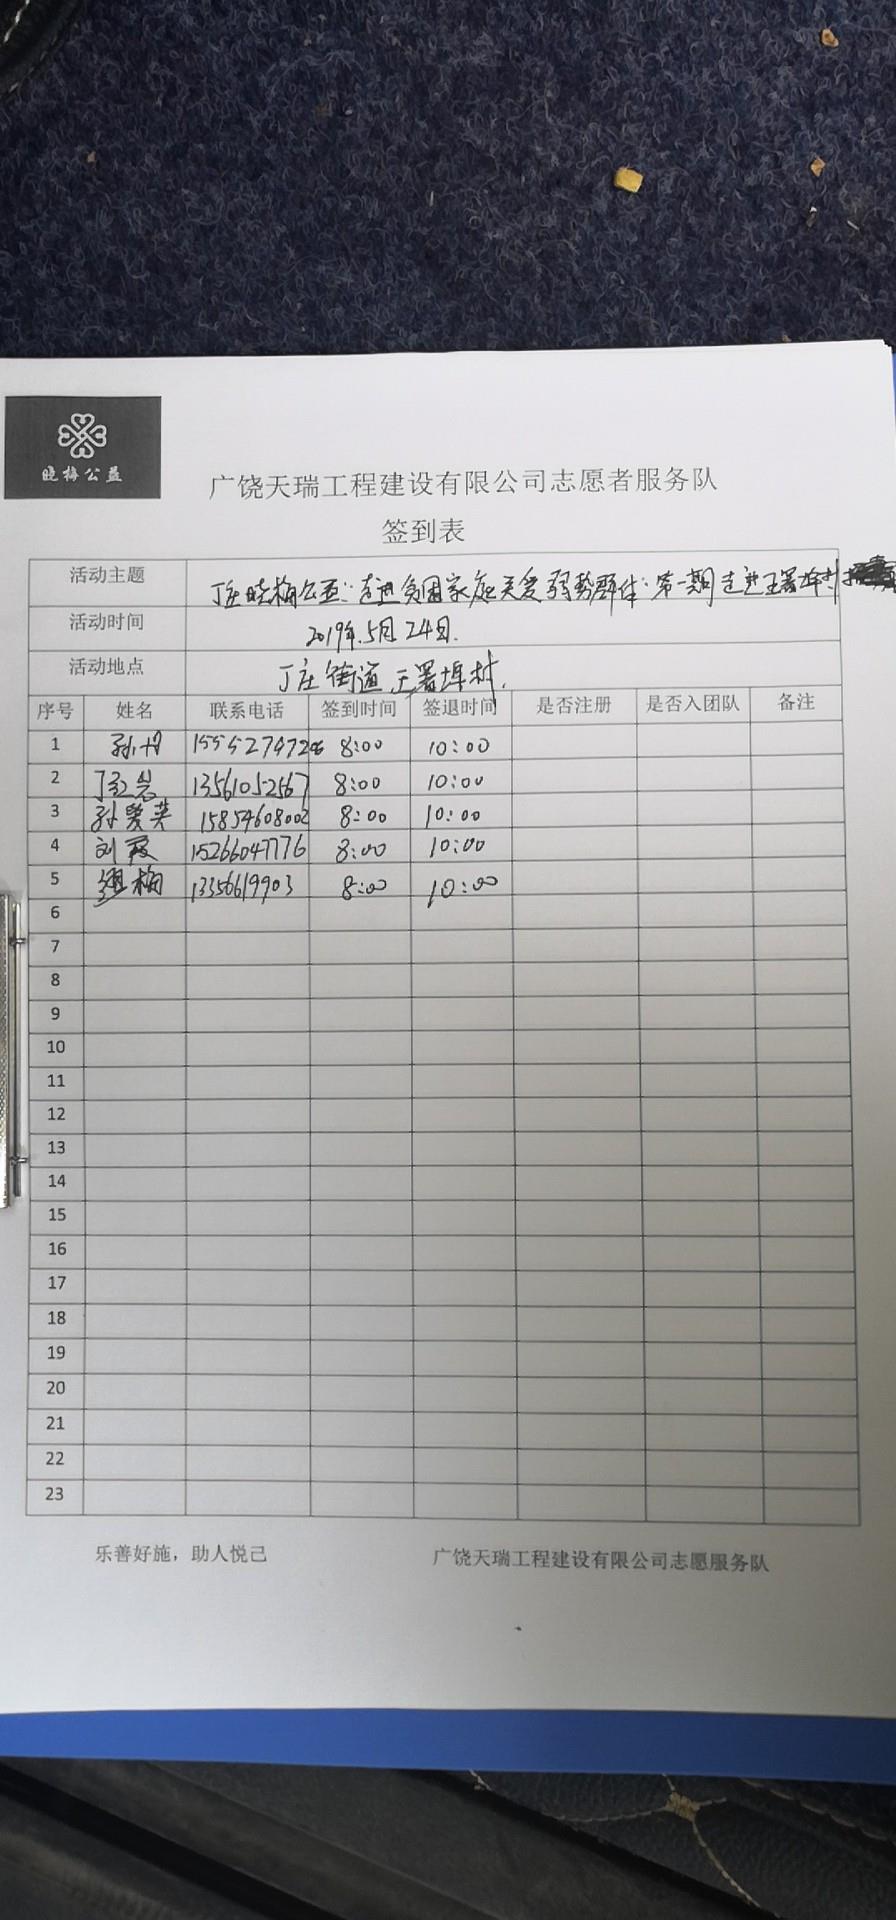 晓梅公益
广饶天瑞工程建设有限公司志愿者服务队
签到表
活动主题 丁庄晓梅公益：走进贫困家庭关爱弱势群体：第一期走进王署埠村
活动时间 2019年.5月24日.
活动地点 丁庄街道王署埠村.
序号 姓名 联系电话 签到时间 签退时间 是否注册 是否入团队 备注
1 孙丹 8:00 10:00
2 13561052567 8:00 10:00
3 孙爱英 15854608002 8:00 10:00
4 刘霞 15266047776 8:00 10:00
5 13356619903 8:00 10:00
6
7
8
9
10
11
12
13
14
15
16
17
18
19
20
21
22
23
乐善好施，助人悦己 广饶天瑞工程建设有限公司志愿服务队